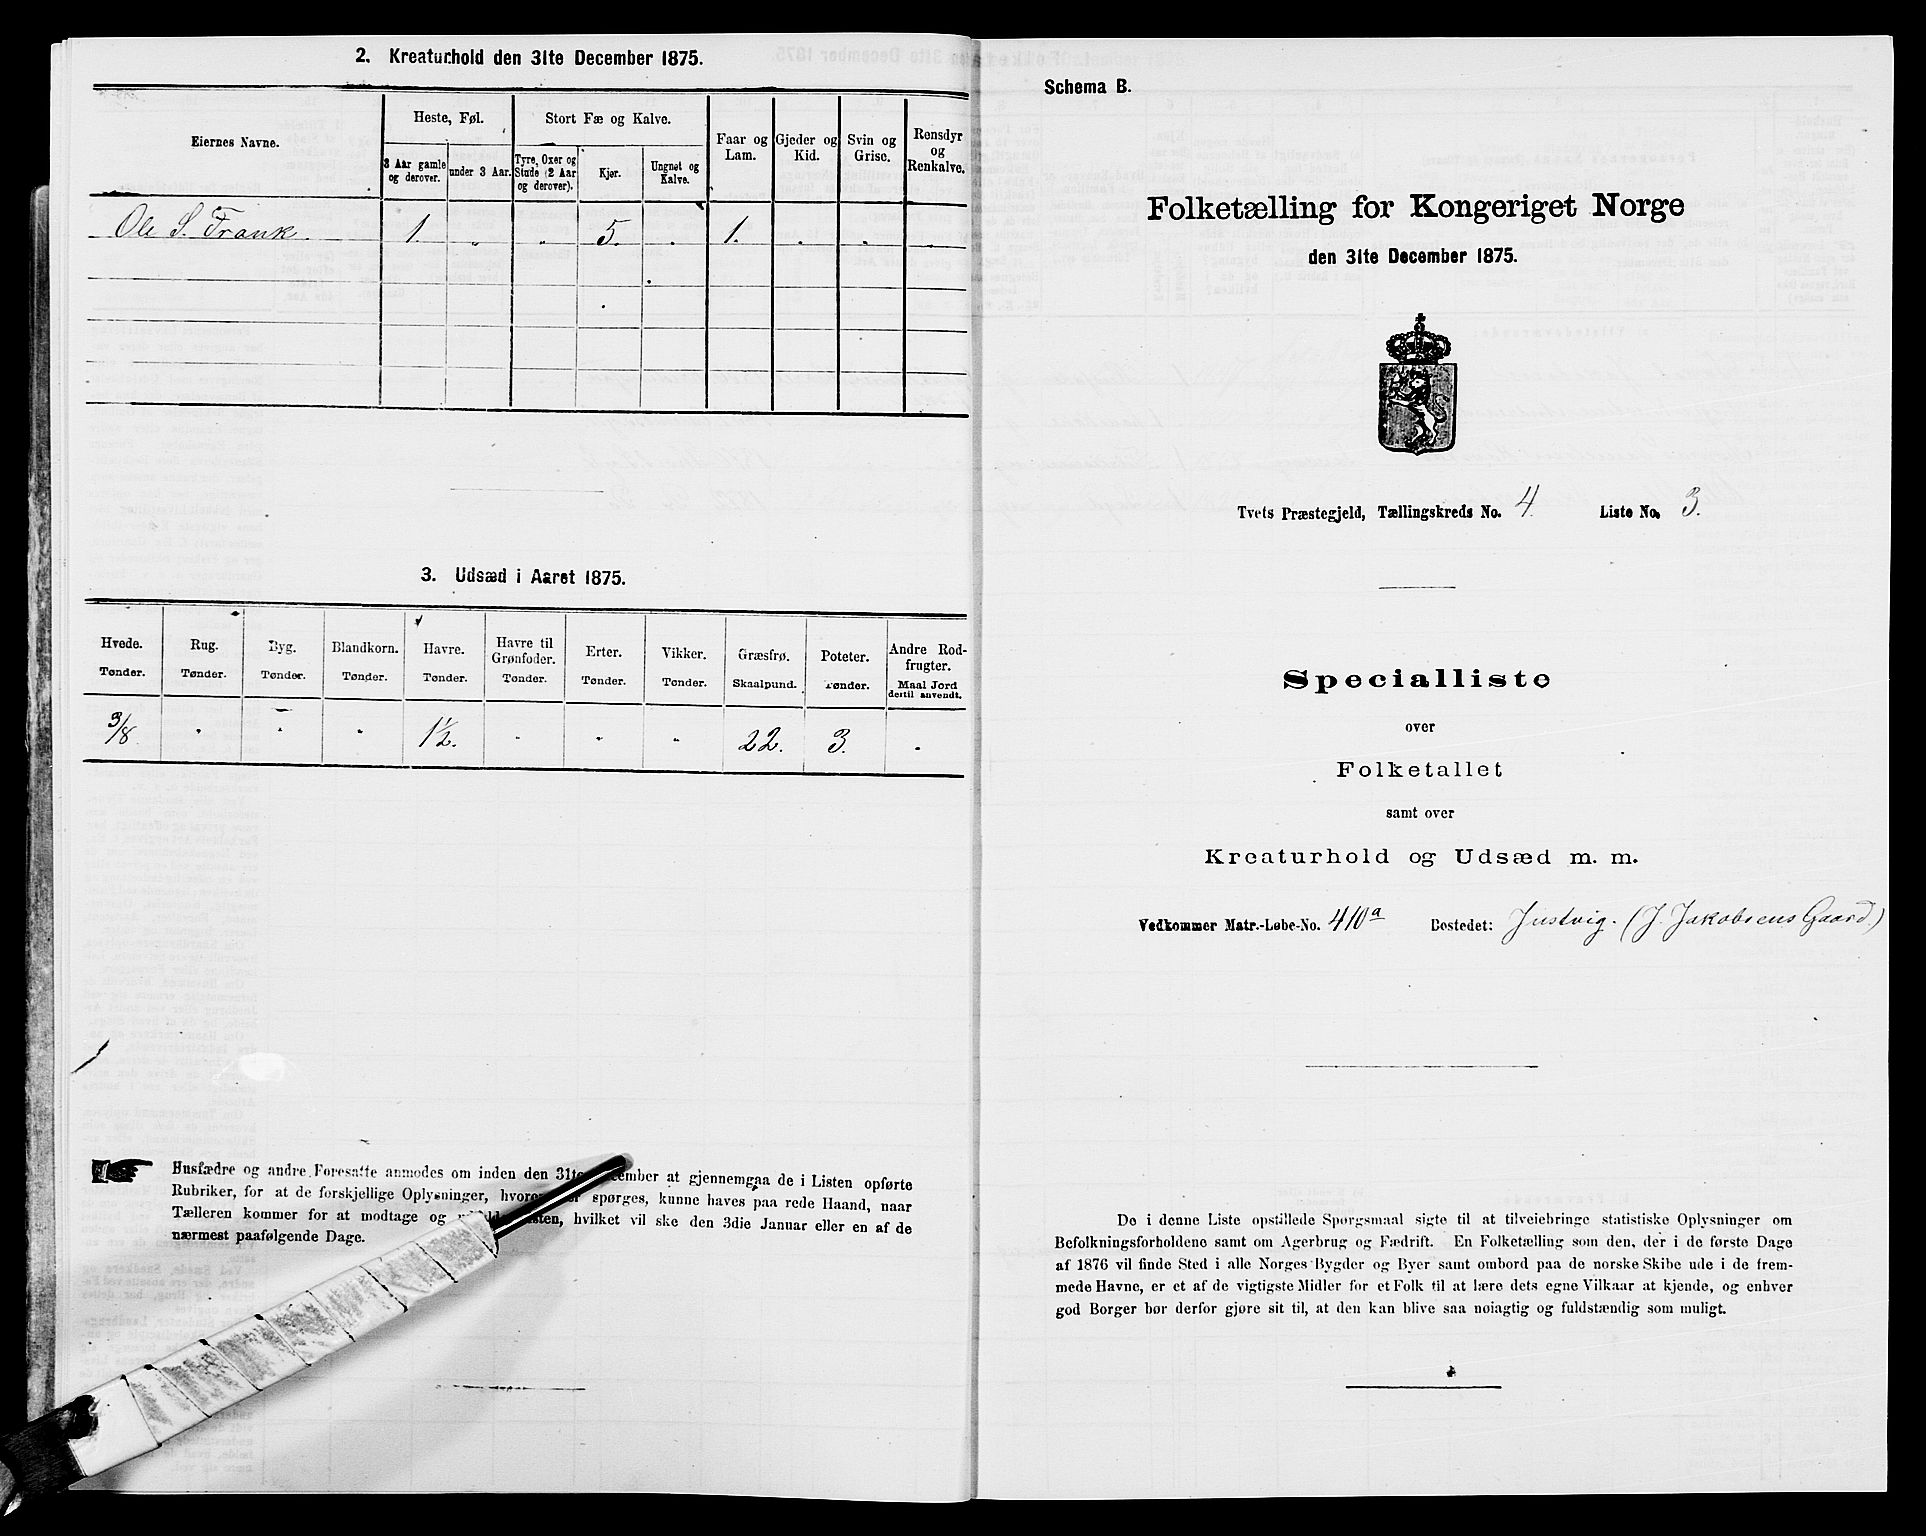 2. Kreaturhold den 31te December 1875.
Eiernes Navne.
Heste, Føl.
Stort Fæ og Kalve.
Faar og Lam.
Gjeder og Kid.
Svin og Grise.
Rensdyr og Renkalve.
3 Aar gamle og derover.
under 3 Aar.
Tyre, Oxer og Stude (2 Aar og derover).
Kjør.
Ungnøt og Kalve.
Ole S. Frank. 1. „ „ 5. . 1. . . .
3. Udsæd i Aaret 1875.
Hvede. Rug. Byg. Blandkorn. Havre. Havre til Grønfoder. Erter. Vikker. Græsfrø. Poteter. Andre Rodfrugter.
Tønder. Tønder. Tønder. Tønder. Tønder. Tønder. Tønder. Tønder. Skaalpund. Tønder. Maal Jord dertil anvendt.
3/8 „ „ „ 1½. „ „ „ 22. 3. „
Husfædre og andre Foresatte anmodes om inden den 31te December at gjennemgaa de i Listen opførte
Rubriker, for at de forskjellige Oplysninger, hvorom der spørges, kunne haves paa rede Haand, naar
Tælleren kommer for at modtage og udfylde Listen, hvilket vil ske den 3die Januar eller en af de
nærmest paafølgende Dage.
Schema B.
Folketælling for Kongeriget Norge
den 31te December 1875.
Tvets Præstegjeld, Tællingskreds No. 4. Liste No. 3.
Specialliste
over
Folketallet
samt over
Kreaturhold og Udsæd m. m.
Vedkommer Matr.-Løbe-No. 410a Bostedet: Justvig. (J. Jakobsens Gaard.)
De i denne Liste opstillede Spørgsmaal sigte til at tilveiebringe statistiske Oplysninger om
Befolkningsforholdene samt om Agerbrug og Fædrift. En Folketælling som den, der i de første Dage
af 1876 vil finde Sted i alle Norges Bygder og Byer samt ombord paa de norske Skibe ude i de frem-
mede Havne, er et af de vigtigste Midler for et Folk til at lære dets egne Vilkaar at kjende, og enhver
god Borger bør derfor gjøre sit til, at den kan blive saa nøiagtig og fuldstændig som muligt.